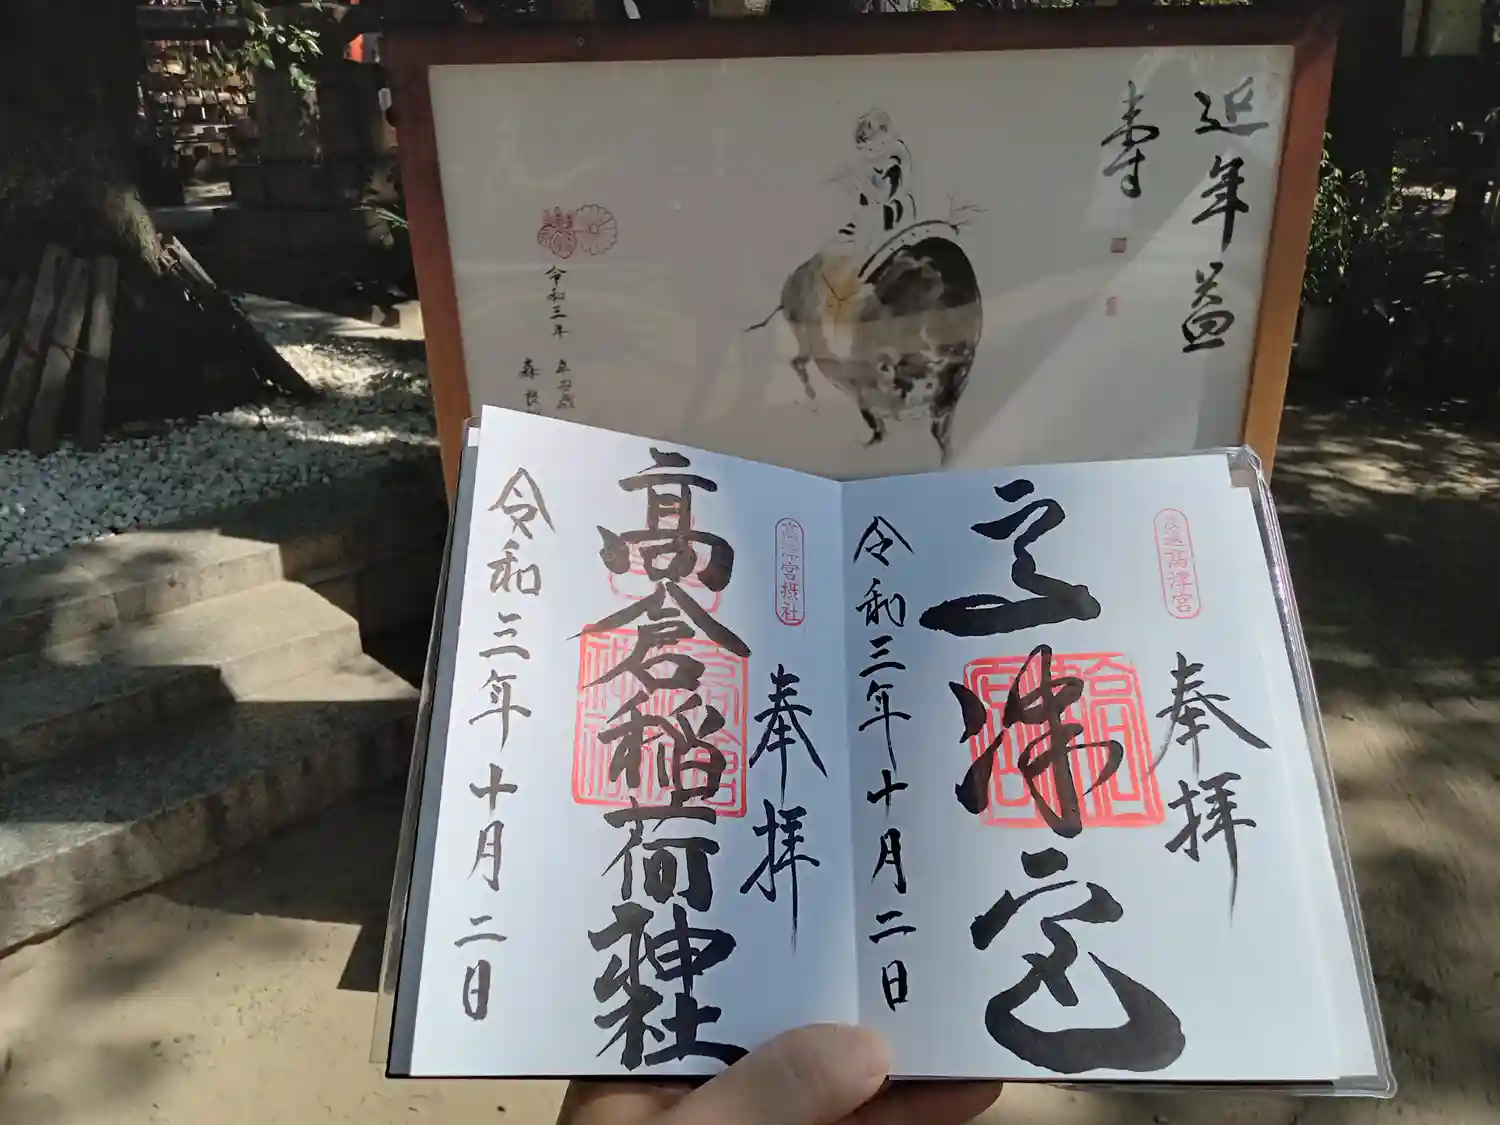 近年益
寿
令和三年
奉拝
浪速高津宮
高津宮
令和三年十月二日
奉拝
高津宮摂社
高倉稲荷神社
令和三年十月二日